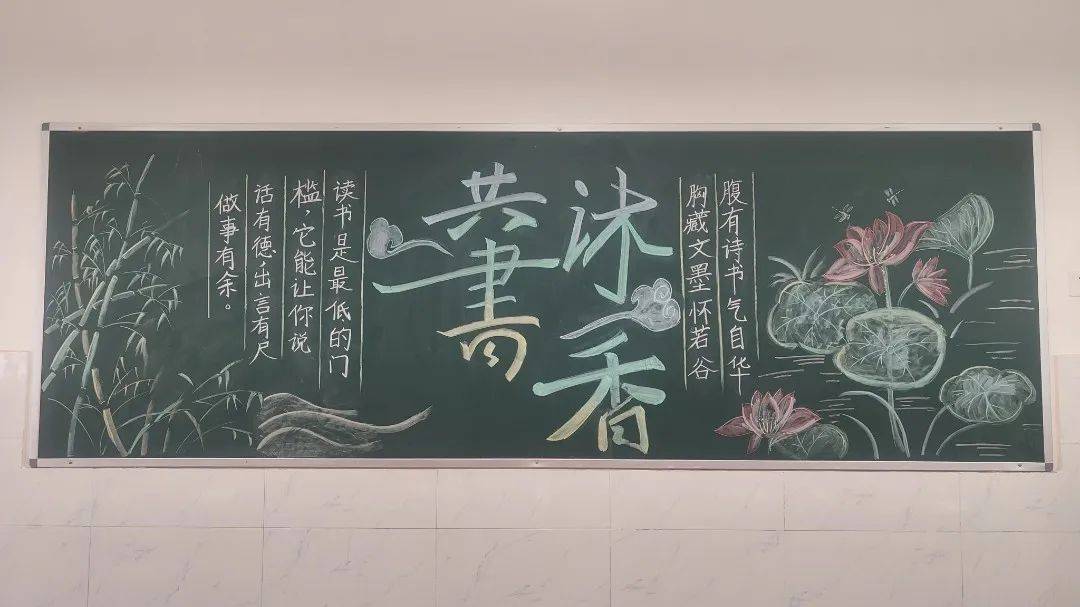 腹有诗书气自华
胸藏文墨怀若谷
共沐
書香
读书是最低的门
槛,它能让你说
话有德出言有尺
做事有余。